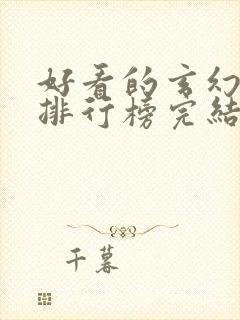 好看的玄幻
排行榜完结
千暮